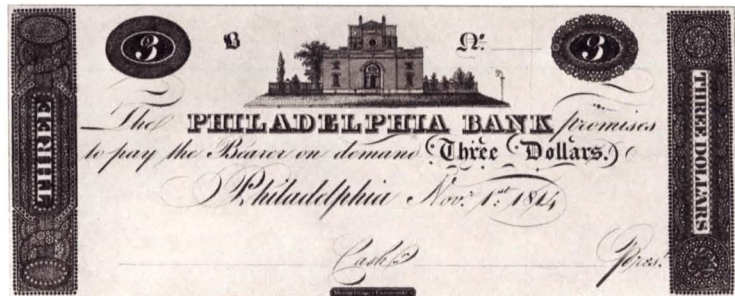 3 B No. 3
The PHILADELPHIA BANK promises
to pay the Bearer on demand Three Dollars.
Philadelphia Nov. 1st 1814
Cashr. Pres.
THREE
THREE DOLLARS